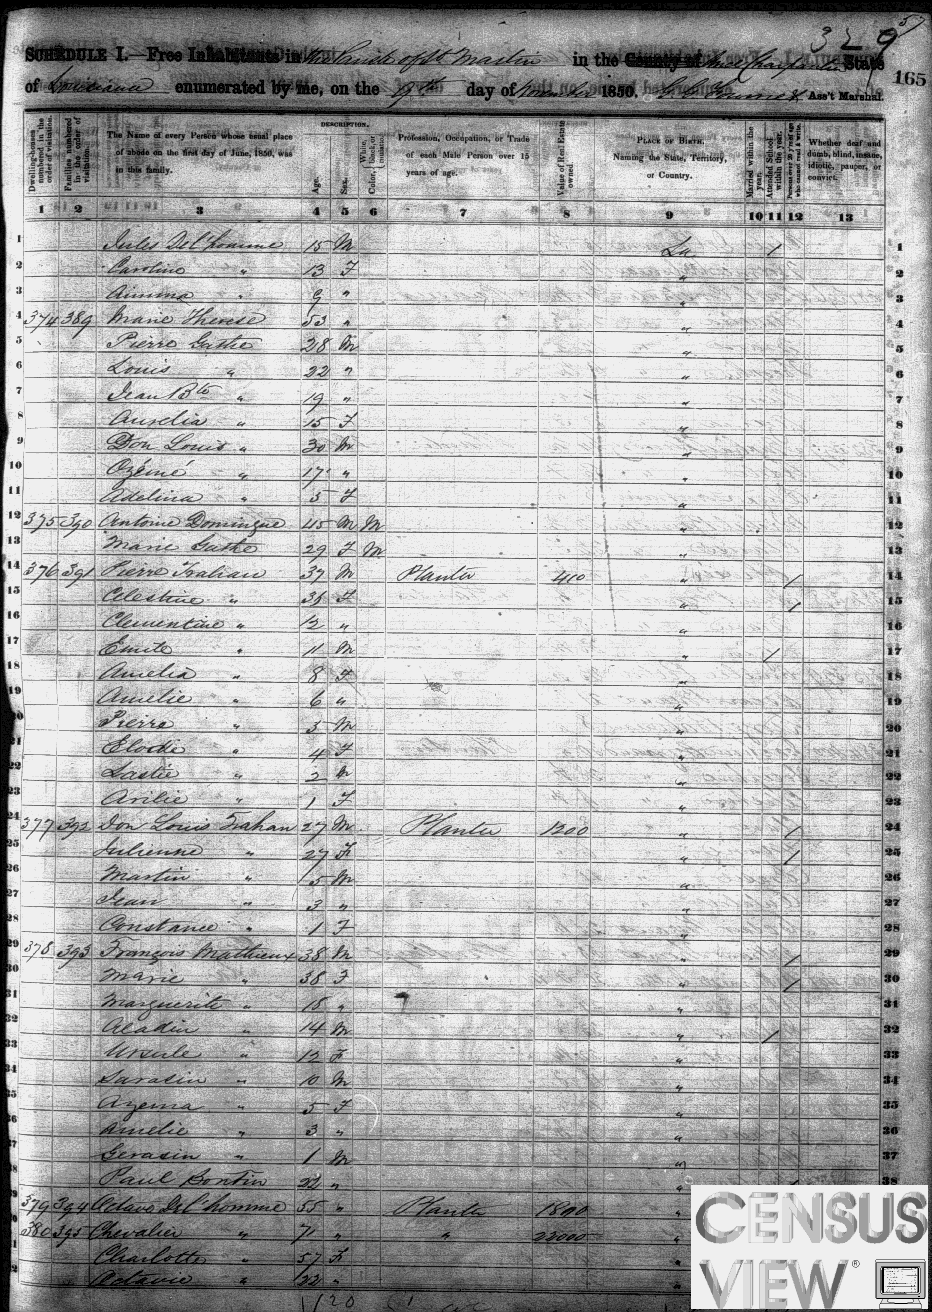 329 57
SCHEDULE I.—Free Inhabitants in the Parish of St Martin in the County of State 165
of Louisiana enumerated by me, on the 19th day of November 1850. Ass't Marshal.
Dwelling-houses numbered in the order of visitation.
Families numbered in the order of visitation.
The Name of every Person whose usual place of abode on the first day of June, 1850, was in this family.
DESCRIPTION.
Age.
Sex.
White, Black, or mulatto.
Color,
Profession, Occupation, or Trade of each Male Person over 15 years of age.
Value of Real Estate owned.
PLACE OF BIRTH.
Naming the State, Territory, or Country.
Married within the year.
Attended School within the year.
Persons over 20 y'rs of age who cannot read & write.
Whether deaf and dumb, blind, insane, idiotic, pauper, or convict.
1 2 3 4 5 6 7 8 9 10 11 12 13
1 Jules Del'homme 15 M La 1 1
2 Caroline " 13 F " 2
3 " 9 " " 3
4 374 389 Marie Therese 53 " " 4
5 Pierre 28 M " 5
6 Louis " 22 " " 6
7 Jean Bte " 19 " " 7
8 Aurelia " 15 F " 8
9 Don Louis " 30 M " 9
10 Ozémé " 17 " " 10
11 Adelina " 5 F " 11
12 375 390 Antoine Domingue 45 M M " 12
13 Marie 29 F M " 13
14 376 391 Pierre Trahan 37 M Planter 400 " / 14
15 Celestine " 38 F " / 15
16 Clementine " 12 " " 16
17 " 11 M " / 17
18 Amelia " 8 F " 18
19 Amelie " 6 " " 19
20 Pierre " 5 M " 20
21 Elodie " 4 F " 21
22 Lastie " 2 M " 22
23 " 1 F " 23
24 377 392 Don Louis Trahan 27 M Planter 1200 " / 24
25 Julienne " 27 F " / 25
26 Martin " 5 M " 26
27 Jean " 3 " " 27
28 Constance " 1 F " 28
29 378 393 François Mathieux 38 M " / 29
30 Marie " 38 F " / 30
31 Marguerite " 18 " " 31
32 Aladin " 14 M " / 32
33 Ursule " 12 F " 33
34 Sarasin " 10 M " 34
35 Azema " 5 F " 35
36 Amelie " 3 " " 36
37 Gerasin " 1 M " 37
38 Paul Bontin 22 " " 38
379 394 Octave Del'homme 55 " Planter 1800 "
380 395 Chevalier " 71 " " 22000 "
Charlotte " 57 F "
Octavie " 22 " "
CENSUS VIEW®